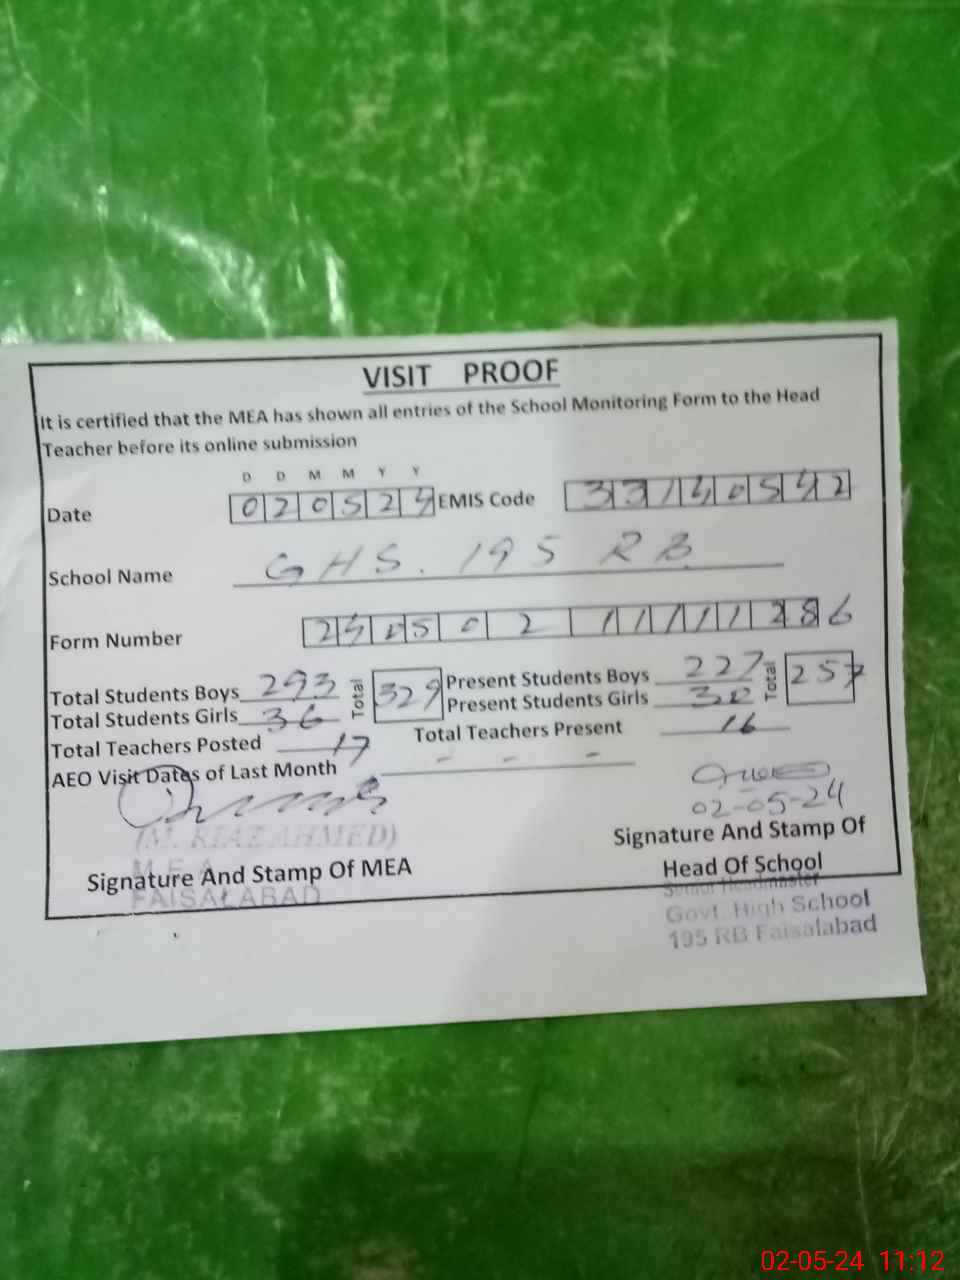 VISIT PROOF
It is certified that the MEA has shown all entries of the School Monitoring Form to the Head
Teacher before its online submission
D D M M Y Y
Date 020524 EMIS Code 33140542
School Name GHS. 195 RB
Form Number 240502 11111286
Total Students Boys 293 Total 329 Present Students Boys 227 Total 257
Total Students Girls 36 Present Students Girls 30
Total Teachers Posted 17 Total Teachers Present 16
AEO Visit Dates of Last Month - - -
02-05-24
(M. RIAZ AHMED)
M.E.A
FAISALABAD
Signature And Stamp Of MEA
Signature And Stamp Of
Head Of School
Senior Headmaster
Govt. High School
195 RB Faisalabad
02-05-24 11:12